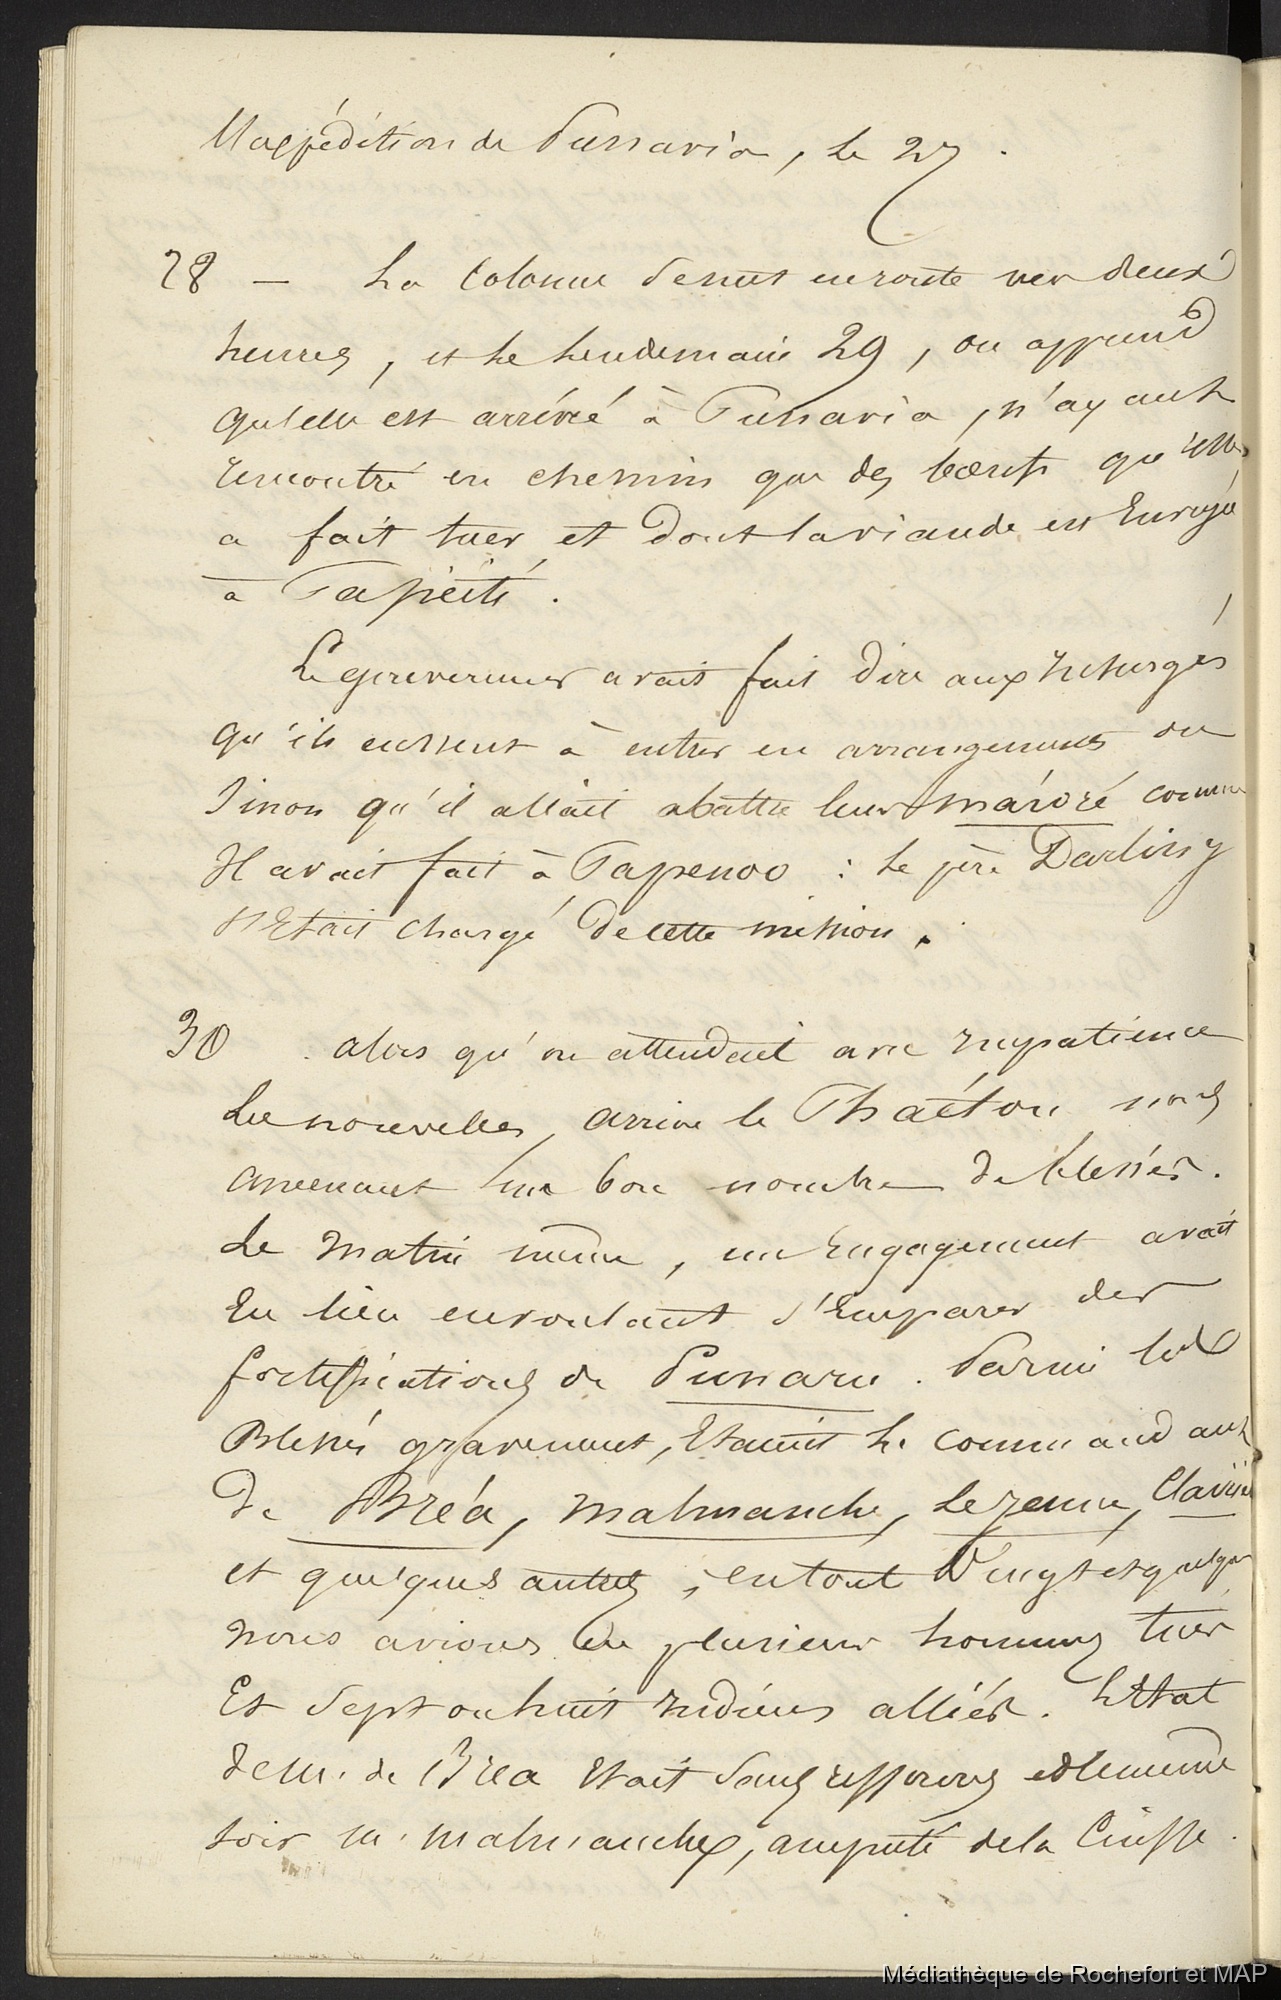 l'expédition de Punavia, le 27.
28 — La Colonne se met en route vers deux
heures, et le lendemain 29, on apprend
qu'elle est arrivée à Punavia, n'ayant
rencontré en chemin que des bœufs qu'elle
a fait tuer et dont la viande est Envoyée
à Papeiti.
Le gouverneur avait fait dire aux Insurgés
qu'ils eussent à entrer en arrangements ou
Sinon qu'il allait abattre leur maroré comme
Il avait fait à Papenoo : le père Darling
s'Etait chargé de cette mission.
30 . alors qu'on attendait avec Impatience
des nouvelles, arrive le Phaéton nous
amenant un bon nombre de blessés.
Le matin même, un Engagement avait
Eu lieu en voulant s'Emparer des
fortifications de Punaru. Parmi les
Blessés gravement, Etaient le commandant
de Bréa, Malmanche, Lejeune,
et quelques autres, en tout Vingt et quelques
nous avions Eu plusieurs hommes tués
Et Sept ou huit Indiens alliés. L'Etat
de M. de Bréa Etait Sans ressources et le même
soir M. Malmanche, amputé de la Cuisse.
Médiathèque de Rochefort et MAP